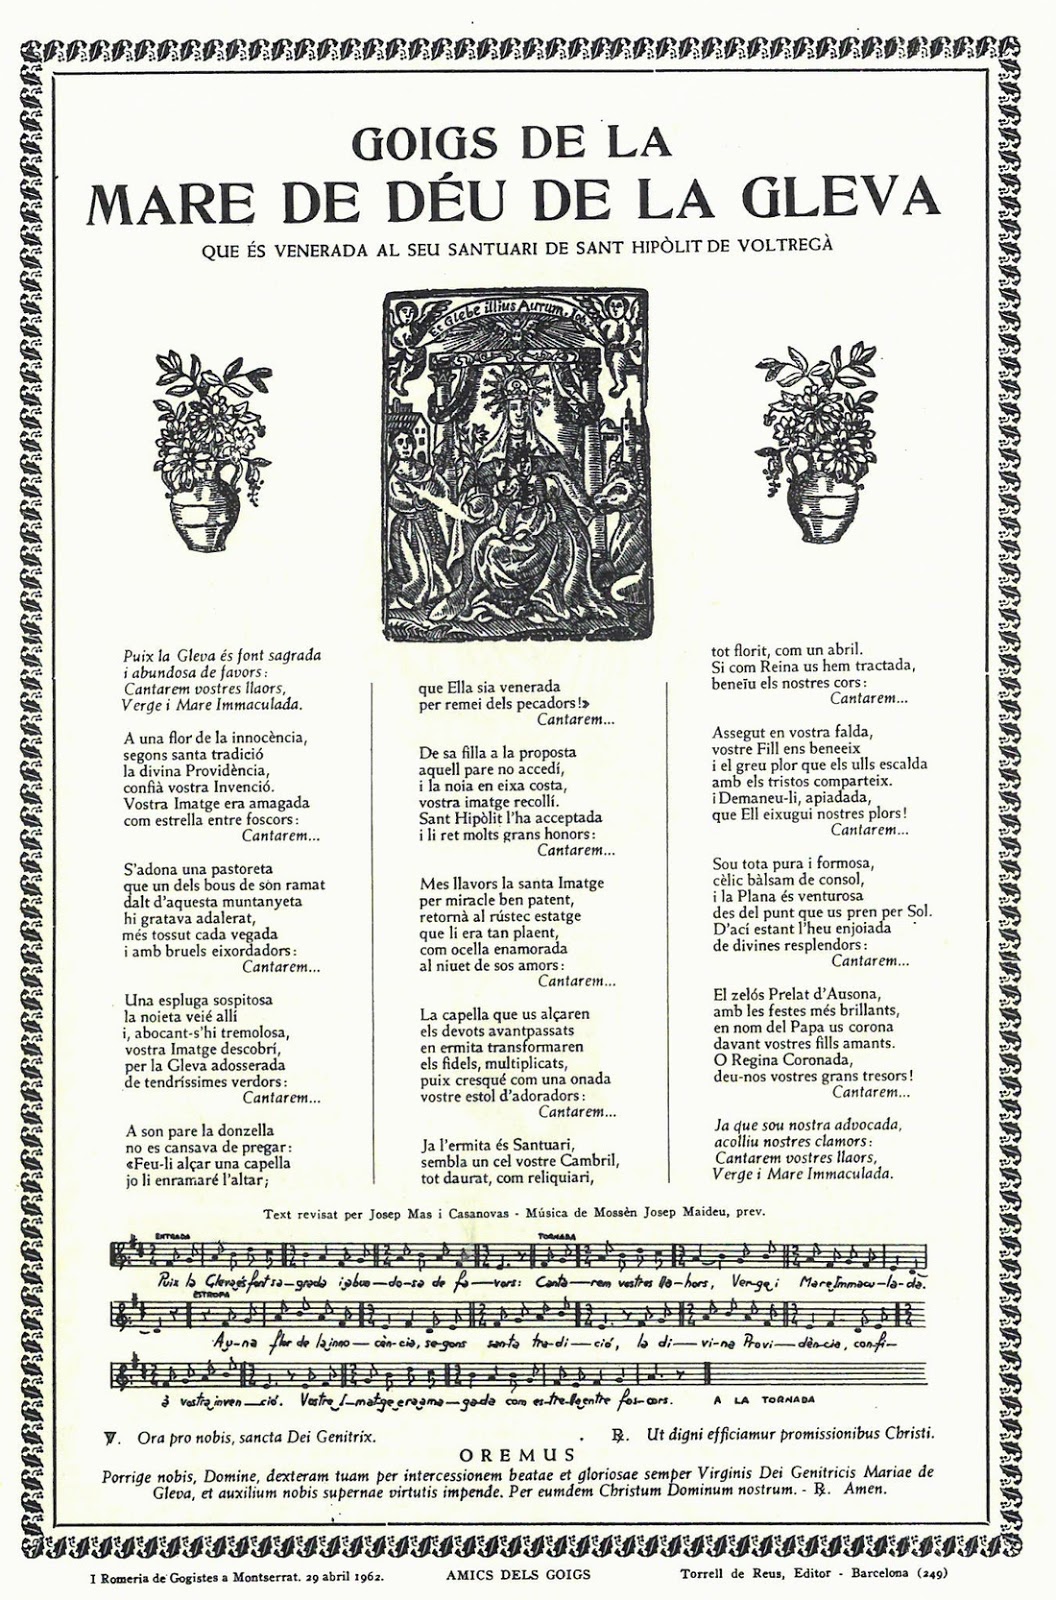 GOIGS DE LA
MARE DE DÉU DE LA GLEVA
QUE ÉS VENERADA AL SEU SANTUARI DE SANT HIPÒLIT DE VOLTREGÀ
Et Glebe illius Aurum.
Puix la Gleva és font sagrada
i abundosa de favors:
Cantarem vostres llaors,
Verge i Mare Immaculada.
A una flor de la innocència,
segons santa tradició
la divina Providència,
confià vostra Invenció.
Vostra Imatge era amagada
com estrella entre foscors:
Cantarem...
S'adona una pastoreta
que un dels bous de són ramat
dalt d'aquesta muntanyeta
hi gratava adalerat,
més tossut cada vegada
i amb bruels eixordadors:
Cantarem...
Una espluga sospitosa
la noieta veié allí
i, abocant-s'hi tremolosa,
vostra Imatge descobrí,
per la Gleva adosserada
de tendríssimes verdors:
Cantarem...
A son pare la donzella
no es cansava de pregar:
«Feu-li alçar una capella
jo li enramaré l'altar;
que Ella sia venerada
per remei dels pecadors!»
Cantarem...
De sa filla a la proposta
aquell pare no accedí,
i la noia en eixa costa,
vostra imatge recollí.
Sant Hipòlit l'ha acceptada
i li ret molts grans honors:
Cantarem...
Mes llavors la santa Imatge
per miracle ben patent,
retornà al rústec estatge
que li era tan plaent,
com ocella enamorada
al niuet de sos amors:
Cantarem...
La capella que us alçaren
els devots avantpassats
en ermita transformaren
els fidels, multiplicats,
puix cresqué com una onada
vostre estol d'adoradors:
Cantarem...
Ja l'ermita és Santuari,
sembla un cel vostre Cambril,
tot daurat, com reliquiari,
tot florit, com un abril.
Si com Reina us hem tractada,
beneïu els nostres cors:
Cantarem...
Assegut en vostra falda,
vostre Fill ens beneeix
i el greu plor que els ulls escalda
amb els tristos comparteix.
¡Demaneu-li, apiadada,
que Ell eixugui nostres plors!
Cantarem...
Sou tota pura i formosa,
cèlic bàlsam de consol,
i la Plana és venturosa
des del punt que us pren per Sol.
D'ací estant l'heu enjoiada
de divines resplendors:
Cantarem...
El zelós Prelat d'Ausona,
amb les festes més brillants,
en nom del Papa us corona
davant vostres fills amants.
O Regina Coronada,
deu-nos vostres grans tresors!
Cantarem...
Ja que sou nostra advocada,
acolliu nostres clamors:
Cantarem vostres llaors,
Verge i Mare Immaculada.
Text revisat per Josep Mas i Casanovas - Música de Mossèn Josep Maideu, prev.
ENTRADA TORNADA
Puix la Gleva és font sa-grada i abun-do-sa de fa-vors: Canta-rem vostres lla-hors, Ver-ge i Mare Immacu-la-da.
ESTROFA
A u-na flor de la inno-cèn-cia, se-gons santa tra-di-ció, la di-vi-na Provi-dèn-cia, confi-
à vostra inven-ció. Vostra I-matge era ama-gada com es-trella entre fos-cors. A LA TORNADA
℣. Ora pro nobis, sancta Dei Genitrix. ℟. Ut digni efficiamur promissionibus Christi.
OREMUS
Porrige nobis, Domine, dexteram tuam per intercessionem beatae et gloriosae semper Virginis Dei Genitricis Mariae de
Gleva, et auxilium nobis supernae virtutis impende. Per eumdem Christum Dominum nostrum. - ℟. Amen.
I Romeria de Gogistes a Montserrat. 29 abril 1962. AMICS DELS GOIGS Torrell de Reus, Editor - Barcelona (249)